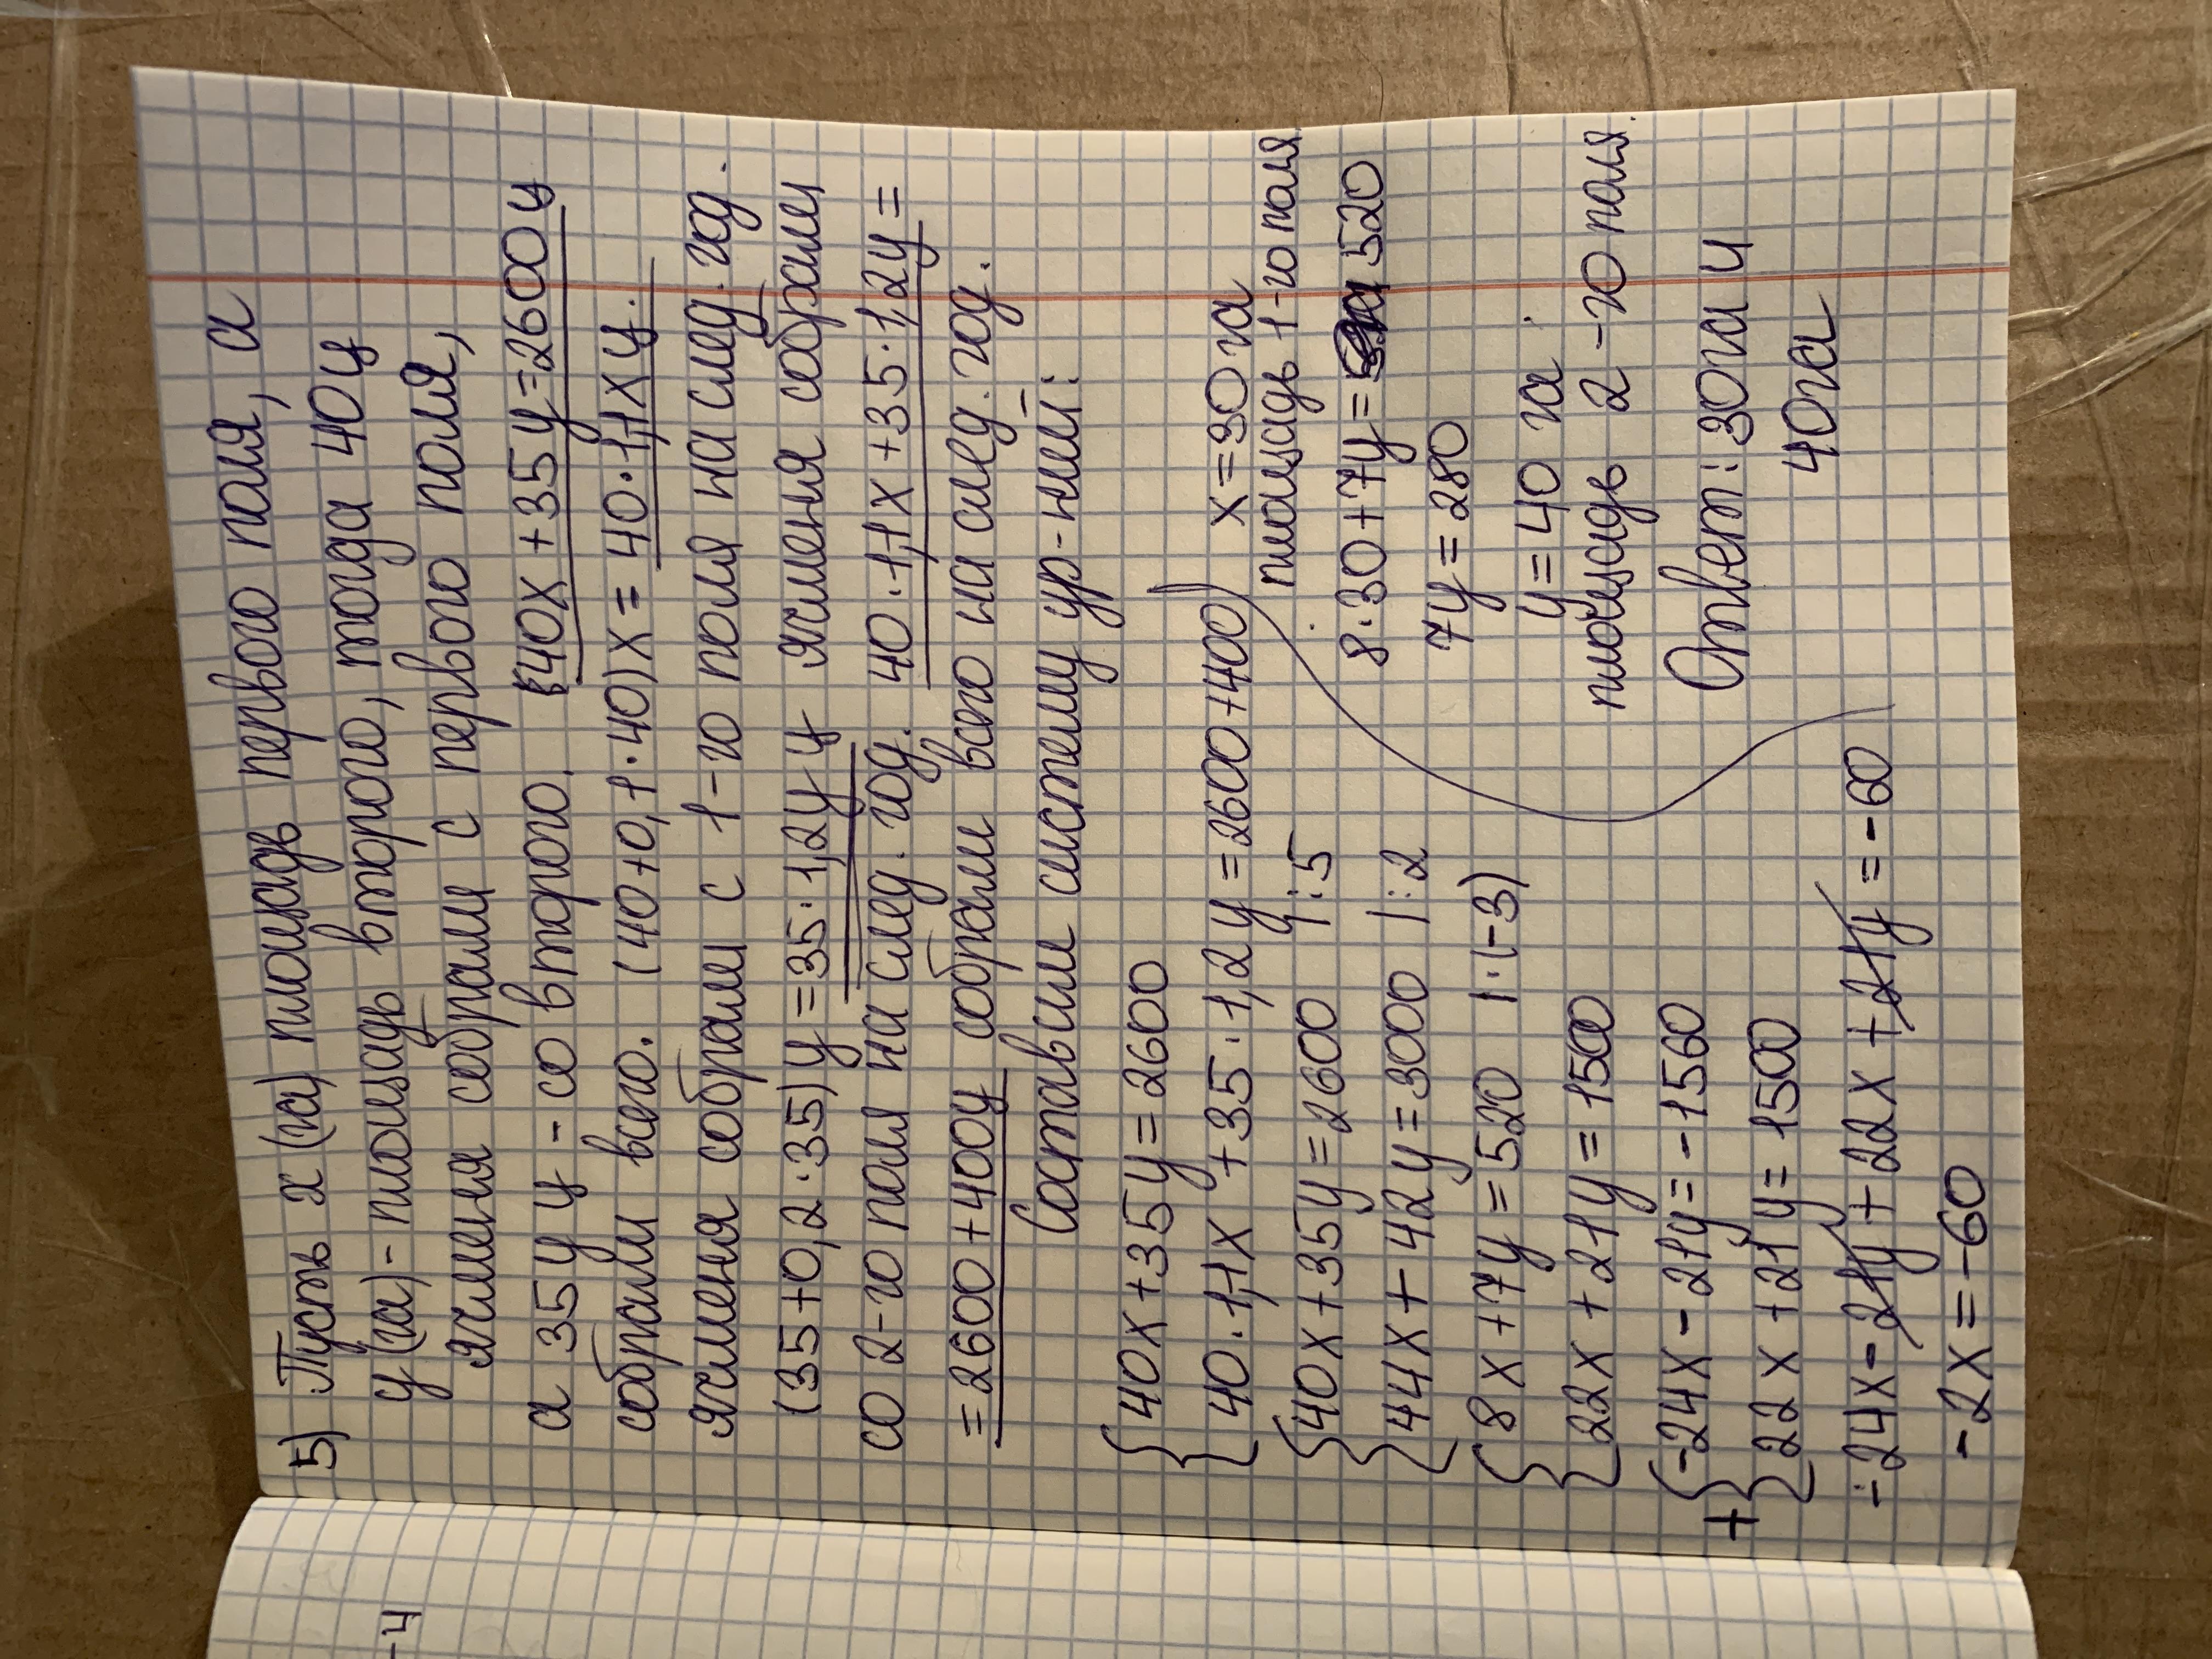 5) Пусть x (га) площадь первого поля, а
y (га) - площадь второго, тогда 40 ц
ячменя собрали с первого поля,
а 35 y ц - со второго. 40x + 35y = 2600 ц
собрали всего. (40+0,1·40)x = 40·1,1x ц.
ячменя собрали с 1-го поля на след. год.
(35+0,2·35)y = 35·1,2y ц ячменя собрали
со 2-го поля на след. год. 40·1,1x + 35·1,2y =
= 2600 + 400 ц собрали всего на след. год.
Составим систему ур-ний:
{40x + 35y = 2600
40·1,1x + 35·1,2y = 2600+400)
{40x + 35y = 2600 |:5
44x + 42y = 3000 |:2
{8x + 7y = 520 |·(-3)
22x + 21y = 1500
+ {-24x - 21y = -1560
22x + 21y = 1500
-24x - 21y + 22x + 21y = -60
-2x = -60
x = 30 га
площадь 1-го поля
8·30 + 7y = 520
7y = 280
y = 40 га
площадь 2-го поля.
Ответ: 30 га и
40 га
-4